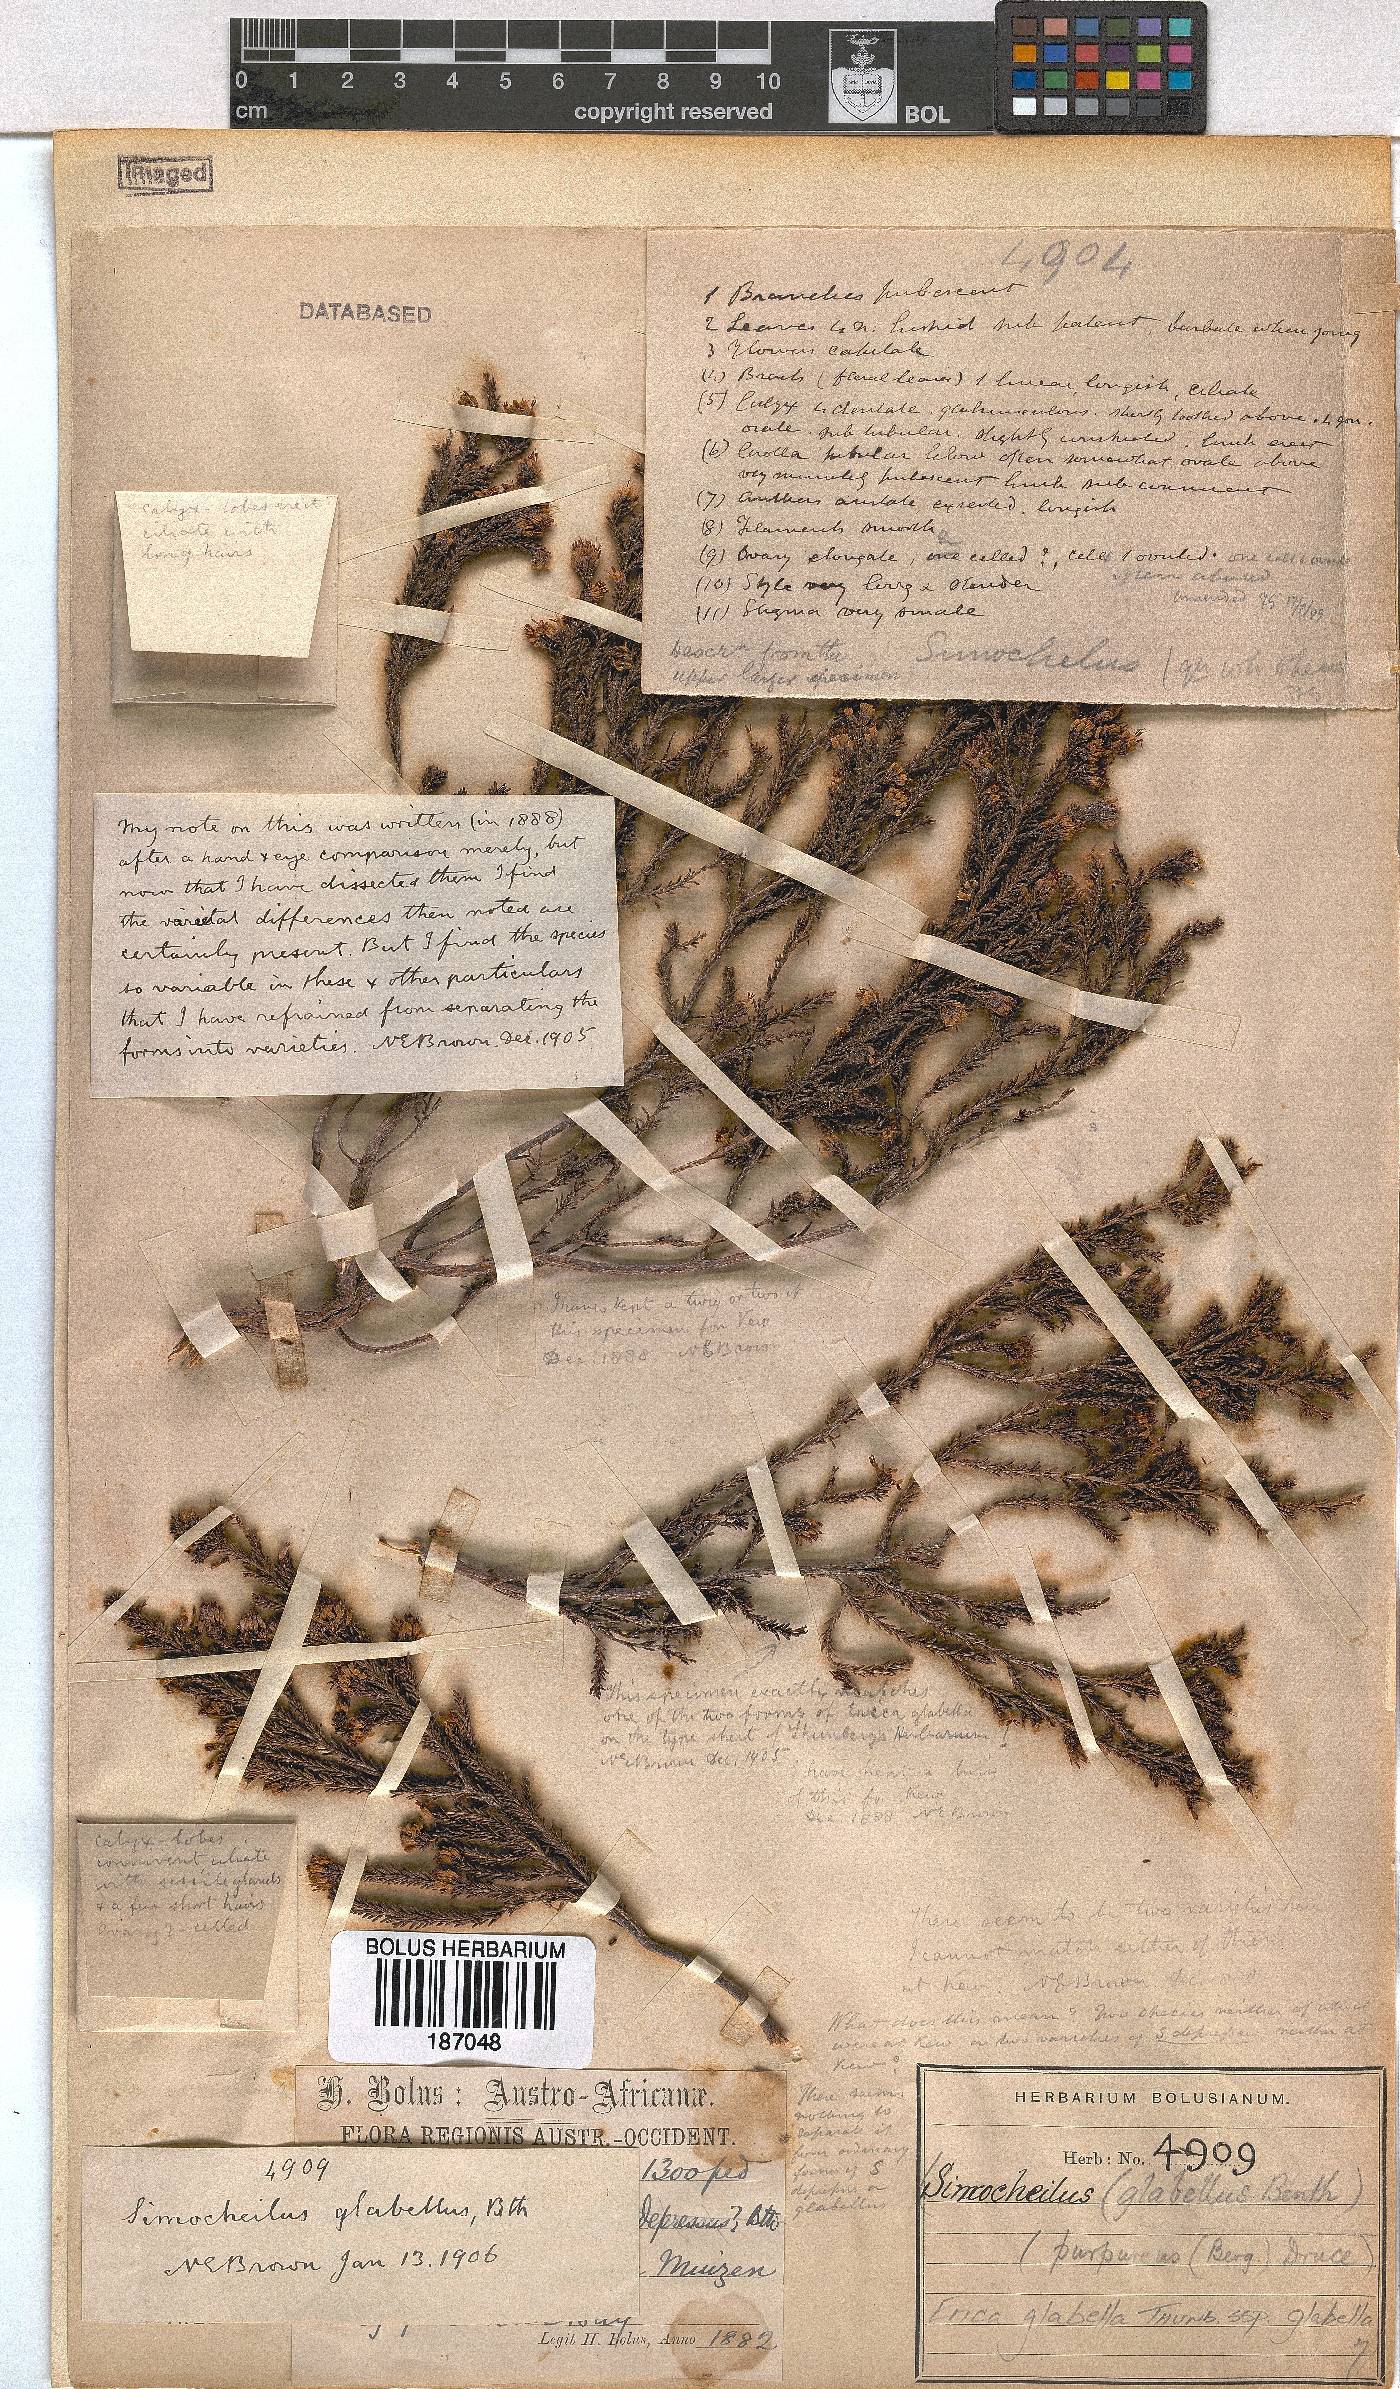 0 1 2 3 4 5 6 7 8 9 10
cm
copyright reserved
BOL
Imaged
DATABASED
4904
1 Branches pubescent
2 Leaves 4 n. hispid sub patent, barbate when young
3 Flowers capitate
(4) Bracts (floral leaves) 1 linear, longish, ciliate
(5) Calyx 4 dentate shortly toothed above
ovate. sub tubular. slightly constricted. limb erect
(6) Corolla tubular below often somewhat ovate above
very minutely pubescent limb sub connivent
(7) Anthers aristate exserted. longish
(8) Filaments smooth
(9) Ovary elongate, one celled?, cell 1 ovuled.
(10) Style very long & slender
(11) Stigma very small
Descrn from the
upper larger specimen
Simochelus
calyx-lobes erect
ciliate with
long hairs
My note on this was written (in 1888)
after a hand & eye comparison merely, but
now that I have dissected them I find
the varietal differences then noted are
certainly present. But I find the species
so variable in these & other particulars
that I have refrained from separating the
forms into varieties. NEBrown. Dec. 1905
I have kept a twig or two of
this specimen for Kew
Dec. 1888 NEBrown
This specimen exactly matches
one of the two forms of Erica glabella
on the type sheet of Thunberg's Herbarium
NEBrown Dec. 1905
I have kept a twig
of this for Kew
Dec 1888 NEBrown
calyx-lobes
connivent ciliate
with sessile glands
& a few short hairs
Ovary 2-celled
There seem to be two varieties here
I cannot match either of them
at Kew. NEBrown
What does this mean? Two species neither of which
were at Kew or two varieties of S. depressus neither at
Kew?
There seems
nothing to
separate it
from ordinary
forms of S
depressus or
glabellus
BOLUS HERBARIUM
187048
H. Bolus: Austro-Africanæ.
FLORA REGIONIS AUSTR.-OCCIDENT.
4909
Simocheilus glabellus, Bth
NEBrown Jan 13. 1906
1300 ped
depressus?, Bth
Muizen
Legit H. Bolus, Anno 1882
HERBARIUM BOLUSIANUM.
Herb: No. 4909
Simocheilus (glabellus Benth)
(purpureus (Berg.) Druce)
Erica glabella THUNB. SSP. glabella